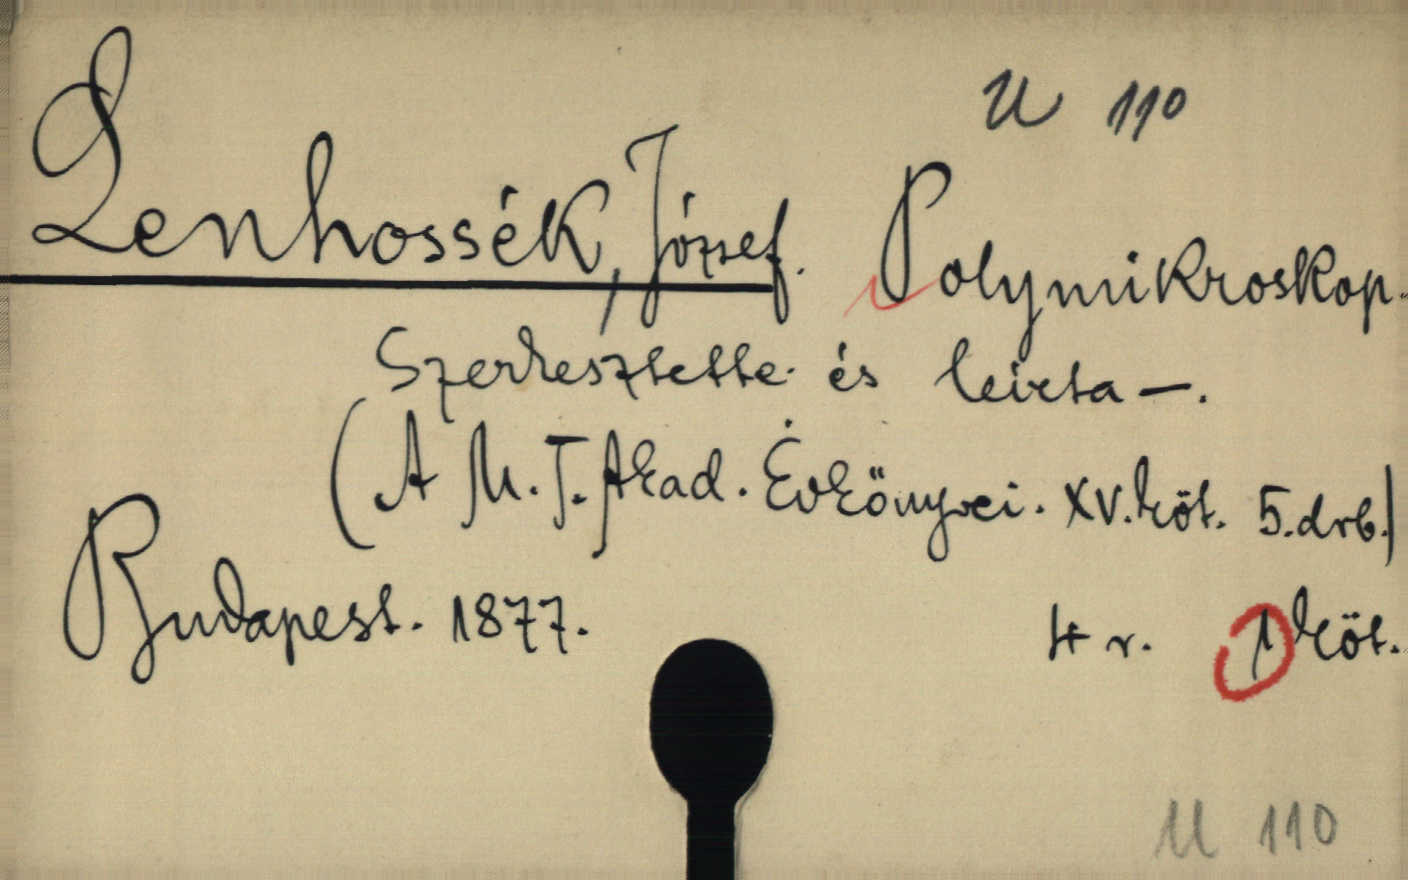 U 110
Lenhossék, József. Polymikroskop.
Szerkesztette és leirta —.
(A M. T. Akad. Évkönyvei. XV. köt. 5. drb.)
Budapest. 1877. 4 r. 1 köt.
U 110